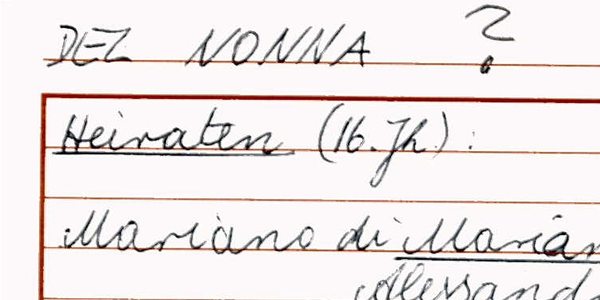 DEL NONNA ?
Heiraten (16. Jh.):
Mariano di Marian
Alessand